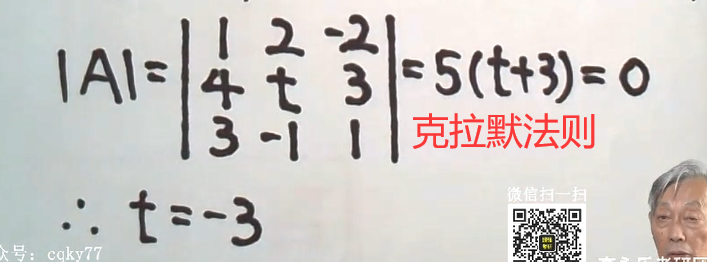 |A| = | 1 2 -2 |
| 4 t 3 | = 5(t+3) = 0
| 3 -1 1 |
克拉默法则
∴ t = -3
微信扫一扫
众号：cqky77